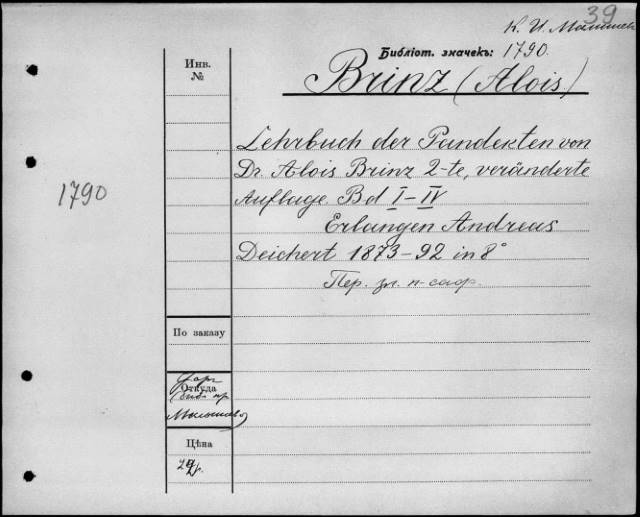 39
К. И. Малышев
Библіот. значекъ: 1790.
Brinz (Alois)
Инв.
№
1790
Lehrbuch der Pandekten von
Dr. Alois Brinz 2-te, veränderte
Auflage Bd I–IV
Erlangen Andreas
Deichert 1873–92 in 8°
Пер. зл. п-саф.
По заказу
Откуда
Малышева
Цѣна